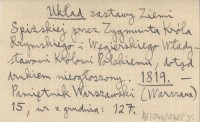 Układ zastawy Ziemi
Spiżskiej przez Zygmunta Króla
Rzymskiego i Węgierskiego Włady-
sławowi Królowi Polskiemu, dotąd
drukiem nieogłoszony. 1819. —
Pamiętnik Warszawski (Warszawa)
15, nr z grudnia: 127.